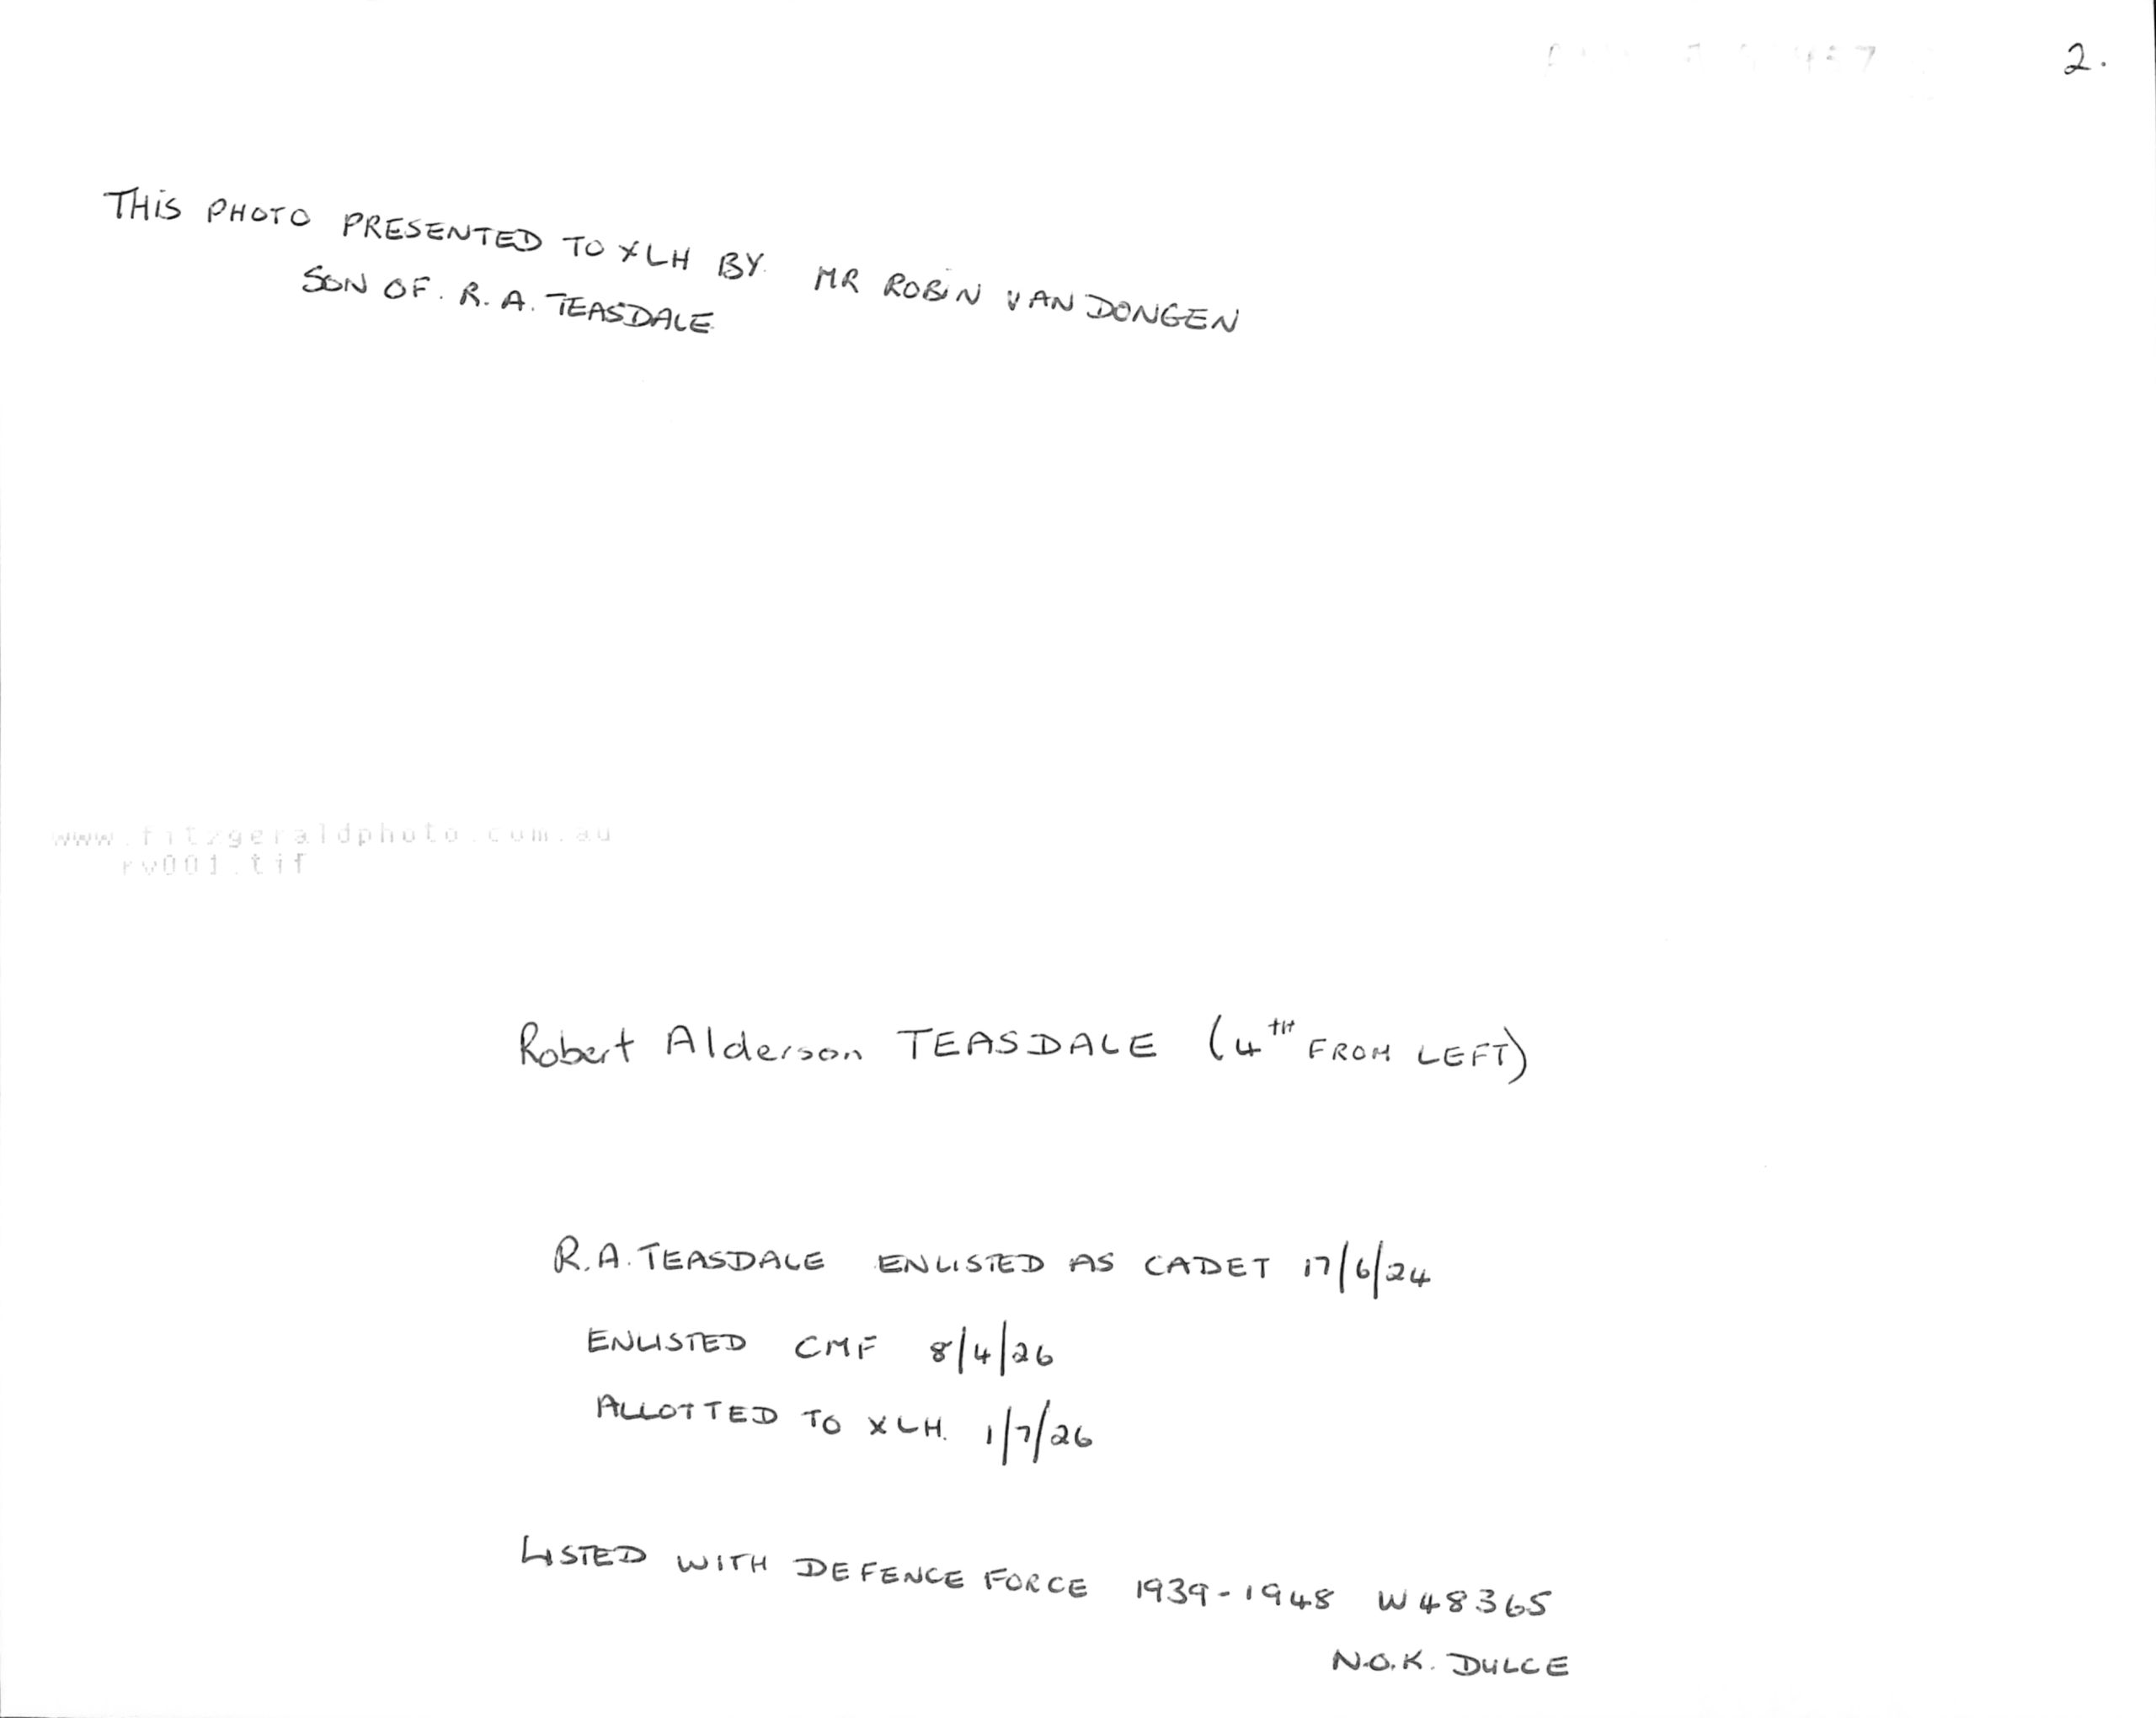 2.
THIS PHOTO PRESENTED TO XLH BY. MR ROBIN VAN DONGEN
SON OF. R. A. TEASDALE
www.fitzgeraldphoto.com.au
rv001.tif
Robert Alderson TEASDALE (4TH FROM LEFT)
R.A. TEASDALE ENLISTED AS CADET 17/6/24
ENLISTED CMF 8/4/26
ALLOTTED TO XLH. 1/7/26
LISTED WITH DEFENCE FORCE 1939-1948 W48365
N.O.K. DULCE